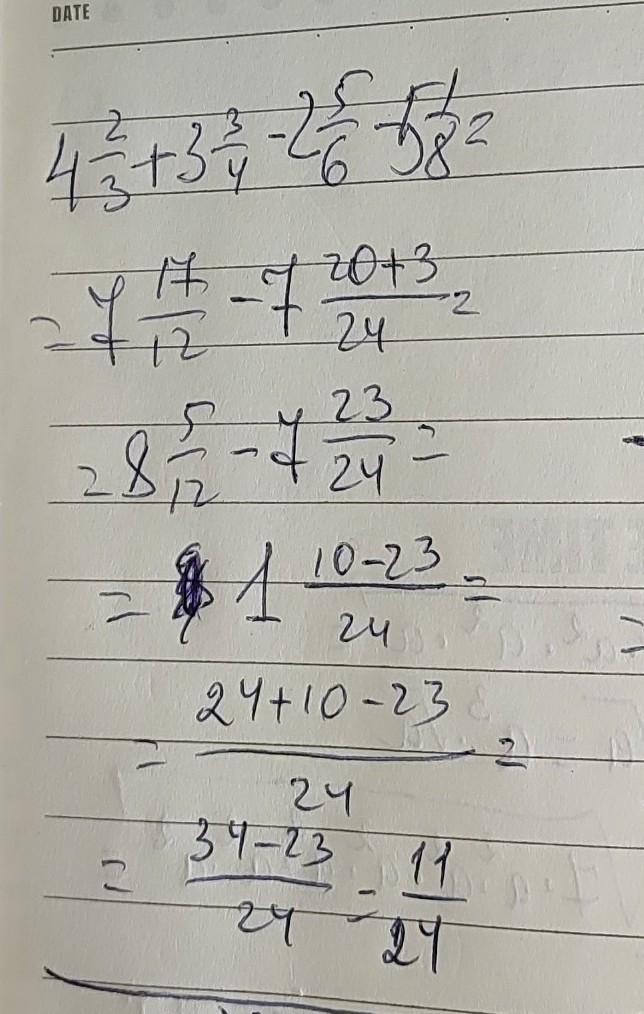 DATE
4 2/3 + 3 3/4 - 2 5/6 - 5 1/8 =
= 7 17/12 - 7 (20+3)/24 =
= 8 5/12 - 7 23/24 =
= 1 (10-23)/24 =
= (24+10-23)/24 =
= (34-23)/24 = 11/24